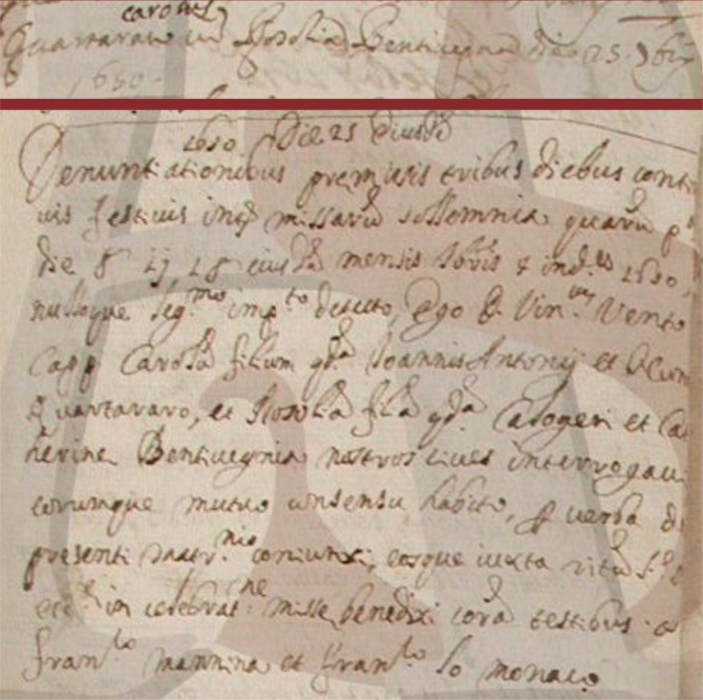 Carolus
Quartararo cum Rosolia Bentivegna die 25. 9bris
1650.
1650 Die 25 Eiusdem
Denuntiationibus premissis tribus diebus conti
uis festiuis missarũ sollemnia quarũ pa
die 8 eiusdẽ mensis Nbris 4 ind.is 1650,
nulloque leg.mo imp.to detecto, Ego D. Vin.us Vento
Capp Carolũ filium qdã Joannis Antonij et
Quartararo, et Rosoliã filiã qdã Calogeri et Ca
herine Bentivegnia nostros ciues interrogaui
eorumque mutuo consensu habito, p verba di
presenti matr.nio coniunxi, eosque iuxta ritũ
in celebrat.ne misse benedixi corã testibus
Fran.co Mannina et Fran.co lo monaco